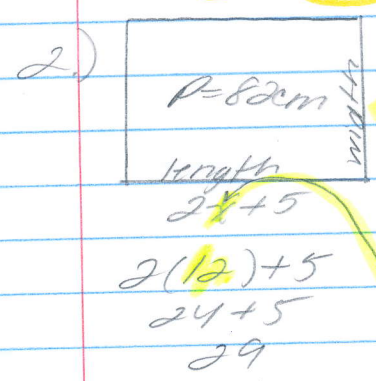 2.)
P=82cm
width
length
2x+5
2(12)+5
24+5
29